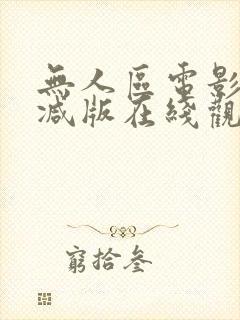 無人區電影
減版在綫觀
窮拾叁